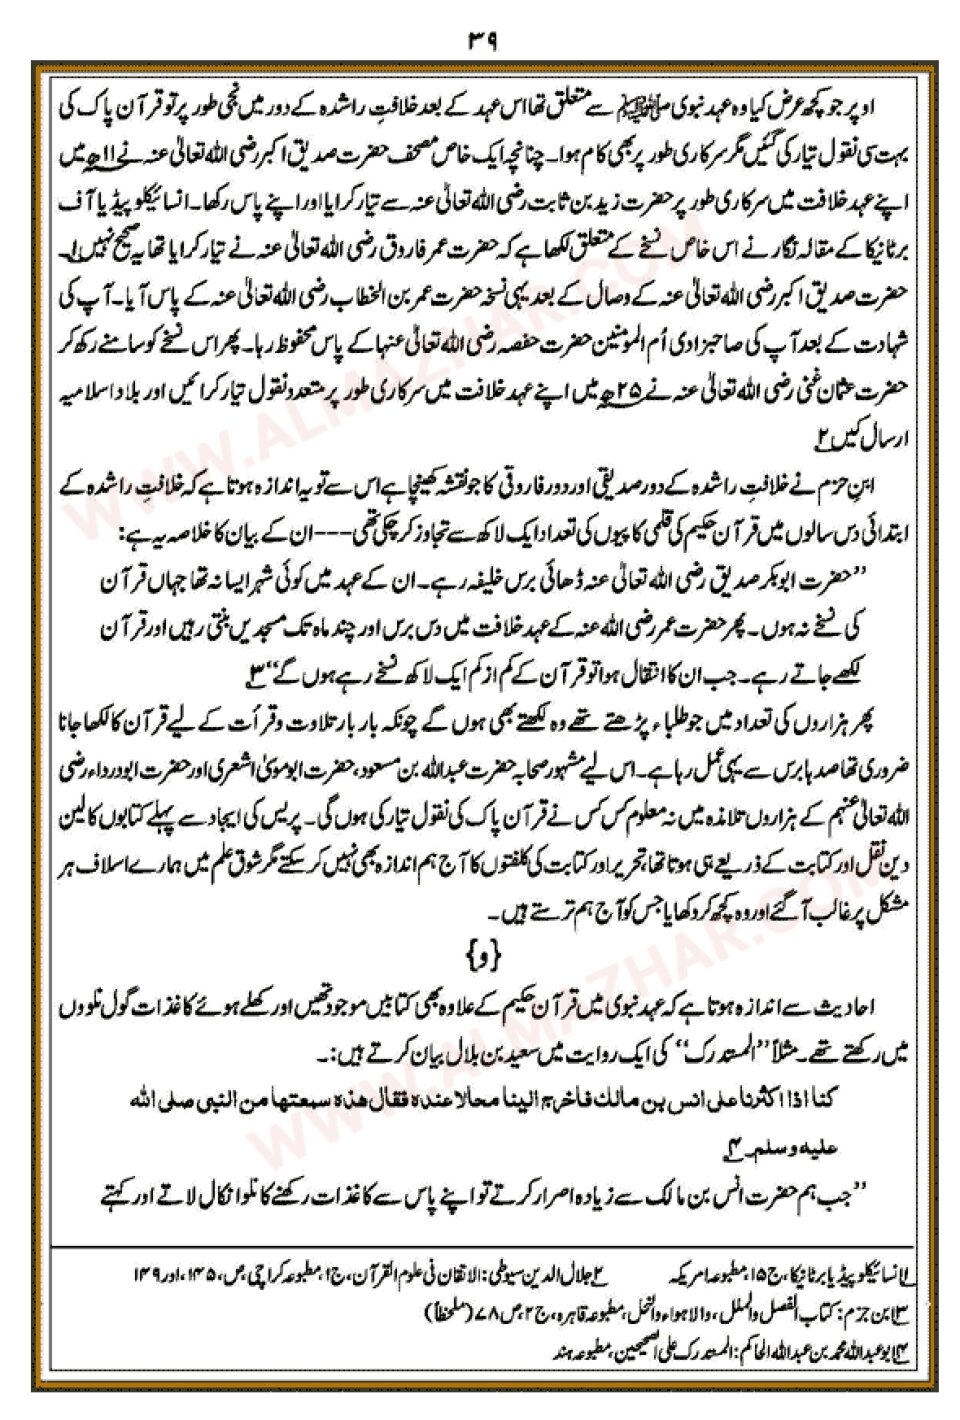 ۳۹
اوپر جو کچھ عرض کیا وہ عہد نبوی ﷺ سے متعلق تھا اس عہد کے بعد خلافتِ راشدہ کے دور میں نجی طور پر تو قرآن پاک کی
بہت سی نقول تیار کی گئیں مگر سرکاری طور پر بھی کام ہوا۔ چنانچہ ایک خاص مصحف حضرت صدیق اکبر رضی اللہ تعالیٰ عنہ نے ۱۱ھ میں
اپنے عہد خلافت میں سرکاری طور پر حضرت زید بن ثابت رضی اللہ تعالیٰ عنہ سے تیار کرایا اور اپنے پاس رکھا۔ انسائیکلو پیڈیا آف
برٹانیکا کے مقالہ نگار نے اس خاص نسخے کے متعلق لکھا ہے کہ حضرت عمر فاروق رضی اللہ تعالیٰ عنہ نے تیار کرایا تھا یہ صحیح نہیں۱۔
حضرت صدیق اکبر رضی اللہ تعالیٰ عنہ کے وصال کے بعد یہی نسخہ حضرت عمر بن الخطاب رضی اللہ تعالیٰ عنہ کے پاس آیا۔ آپ کی
شہادت کے بعد آپ کی صاحبزادی اُم المومنین حضرت حفصہ رضی اللہ تعالیٰ عنہا کے پاس محفوظ رہا۔ پھر اس نسخے کو سامنے رکھ کر
حضرت عثمان غنی رضی اللہ تعالیٰ عنہ نے ۲۵ھ میں اپنے عہد خلافت میں سرکاری طور پر متعدد نقول تیار کرائیں اور بلاد اسلامیہ
ارسال کیں۲
ابنِ حزم نے خلافتِ راشدہ کے دور صدیقی اور دور فاروقی کا جو نقشہ کھینچا ہے اس سے تو یہ اندازہ ہوتا ہے کہ خلافتِ راشدہ کے
ابتدائی دس سالوں میں قرآن حکیم کی قلمی کاپیوں کی تعداد ایک لاکھ سے تجاوز کر چکی تھی --- ان کے بیان کا خلاصہ یہ ہے:
’’حضرت ابوبکر صدیق رضی اللہ تعالیٰ عنہ ڈھائی برس خلیفہ رہے۔ ان کے عہد میں کوئی شہر ایسا نہ تھا جہاں قرآن
کی نسخے نہ ہوں۔ پھر حضرت عمر رضی اللہ عنہ کے عہد خلافت میں دس برس اور چند ماہ تک مسجدیں بنتی رہیں اور قرآن
لکھے جاتے رہے۔ جب ان کا انتقال ہوا تو قرآن کے کم از کم ایک لاکھ نسخے رہے ہوں گے‘‘۳
پھر ہزاروں کی تعداد میں جو طلباء پڑھتے تھے وہ لکھتے بھی ہوں گے چونکہ بار بار تلاوت وقرأت کے لیے قرآن کا لکھا جانا
ضروری تھا صدہا برس سے یہی عمل رہا ہے۔ اس لیے مشہور صحابہ حضرت عبداللہ بن مسعود، حضرت ابوموسیٰ اشعری اور حضرت ابودرداء رضی
اللہ تعالیٰ عنہم کے ہزاروں تلامذہ میں نہ معلوم کس کس نے قرآن پاک کی نقول تیار کی ہوں گی۔ پریس کی ایجاد سے پہلے کتابوں کا لین
دین نقل اور کتابت کے ذریعے ہی ہوتا تھا، تحریر اور کتابت کی کلفتوں کا آج ہم اندازہ بھی نہیں کر سکتے مگر شوق علم میں ہمارے اسلاف ہر
مشکل پر غالب آ گئے اور وہ کچھ کر دکھایا جس کو آج ہم ترستے ہیں۔
{و}
احادیث سے اندازہ ہوتا ہے کہ عہد نبوی میں قرآن حکیم کے علاوہ بھی کتابیں موجود تھیں اور کھلے ہوئے کاغذات گول نلووں
میں رکھتے تھے۔ مثلاً ’’المستدرک‘‘ کی ایک روایت میں سعید بن ہلال بیان کرتے ہیں:۔
کنا اذا اکثرنا علی انس بن مالك فاخرج الینا محالا عندہ فقال ھذہ سمعتھا من النبی صلی اللہ
علیہ وسلم۔۴
’’جب ہم حضرت انس بن مالک سے زیادہ اصرار کرتے تو اپنے پاس سے کاغذات رکھنے کا نلوا نکال لاتے اور کہتے
۱ انسائیکلو پیڈیا برٹانیکا، ج۱۵، مطبوعہ امریکہ ۲ جلال الدین سیوطی: الاتقان فی علوم القرآن، ج۱، مطبوعہ کراچی، ص، ۱۴۵، اور ۱۴۹
۳ ابن حزم: کتاب الفصل والملل، والاھواء والنحل، مطبوعہ قاہرہ، ج۲، ص۷۸ (ملخصاً)
۴ ابوعبداللہ محمد بن عبداللہ الحاکم: المستدرک علی الصحیحین، مطبوعہ ہند
WWW.ALMAZHAR.COM
WWW.ALMAZHAR.COM